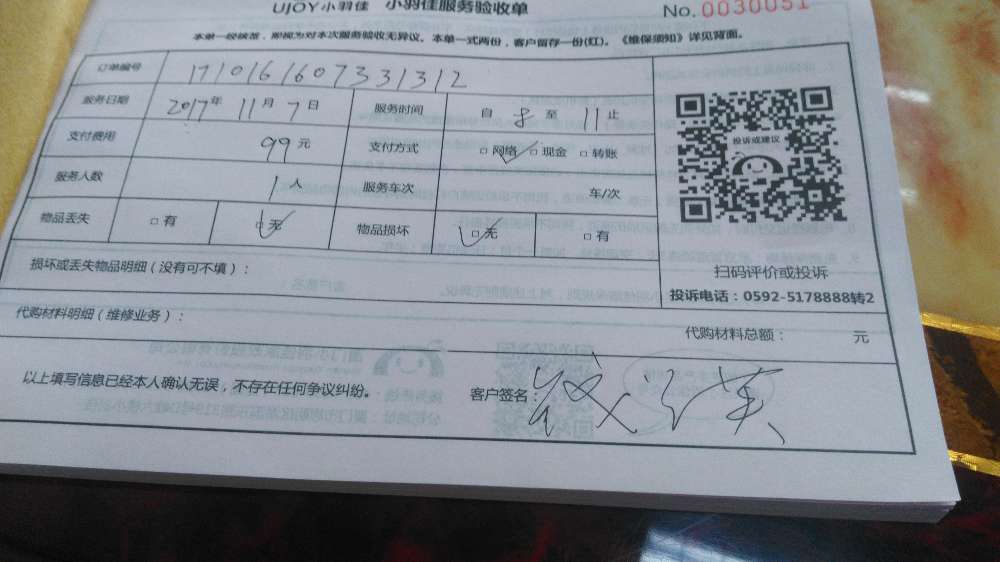 UJOY小羽佳 小羽佳服务验收单 No. 0030051
本单一经核签，即视为对本次服务验收无异议。本单一式两份，客户留存一份(红)。《维保须知》详见背面。
订单编号 1710161607331312
服务日期 2017年 11月 7日 服务时间 自 8 至 11 止
支付费用 99元 支付方式 □网络 □现金 □转账
服务人数 1人 服务车次 车/次
物品丢失 □有 □无 物品损坏 □无 □有
投诉或建议
损坏或丢失物品明细（没有可不填）：
扫码评价或投诉
投诉电话：0592-5178888转2
代购材料明细（维修业务）： 代购材料总额： 元
以上填写信息已经本人确认无误，不存在任何争议纠纷。 客户签名：